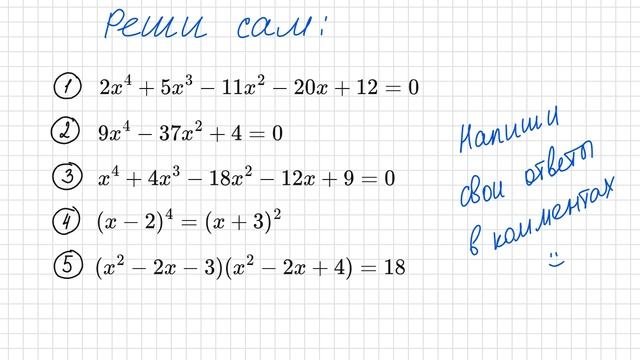 Реши сам:
1 2x⁴ + 5x³ − 11x² − 20x + 12 = 0
2 9x⁴ − 37x² + 4 = 0
3 x⁴ + 4x³ − 18x² − 12x + 9 = 0
4 (x − 2)⁴ = (x + 3)²
5 (x² − 2x − 3)(x² − 2x + 4) = 18
Напиши
свои ответы
в комментах